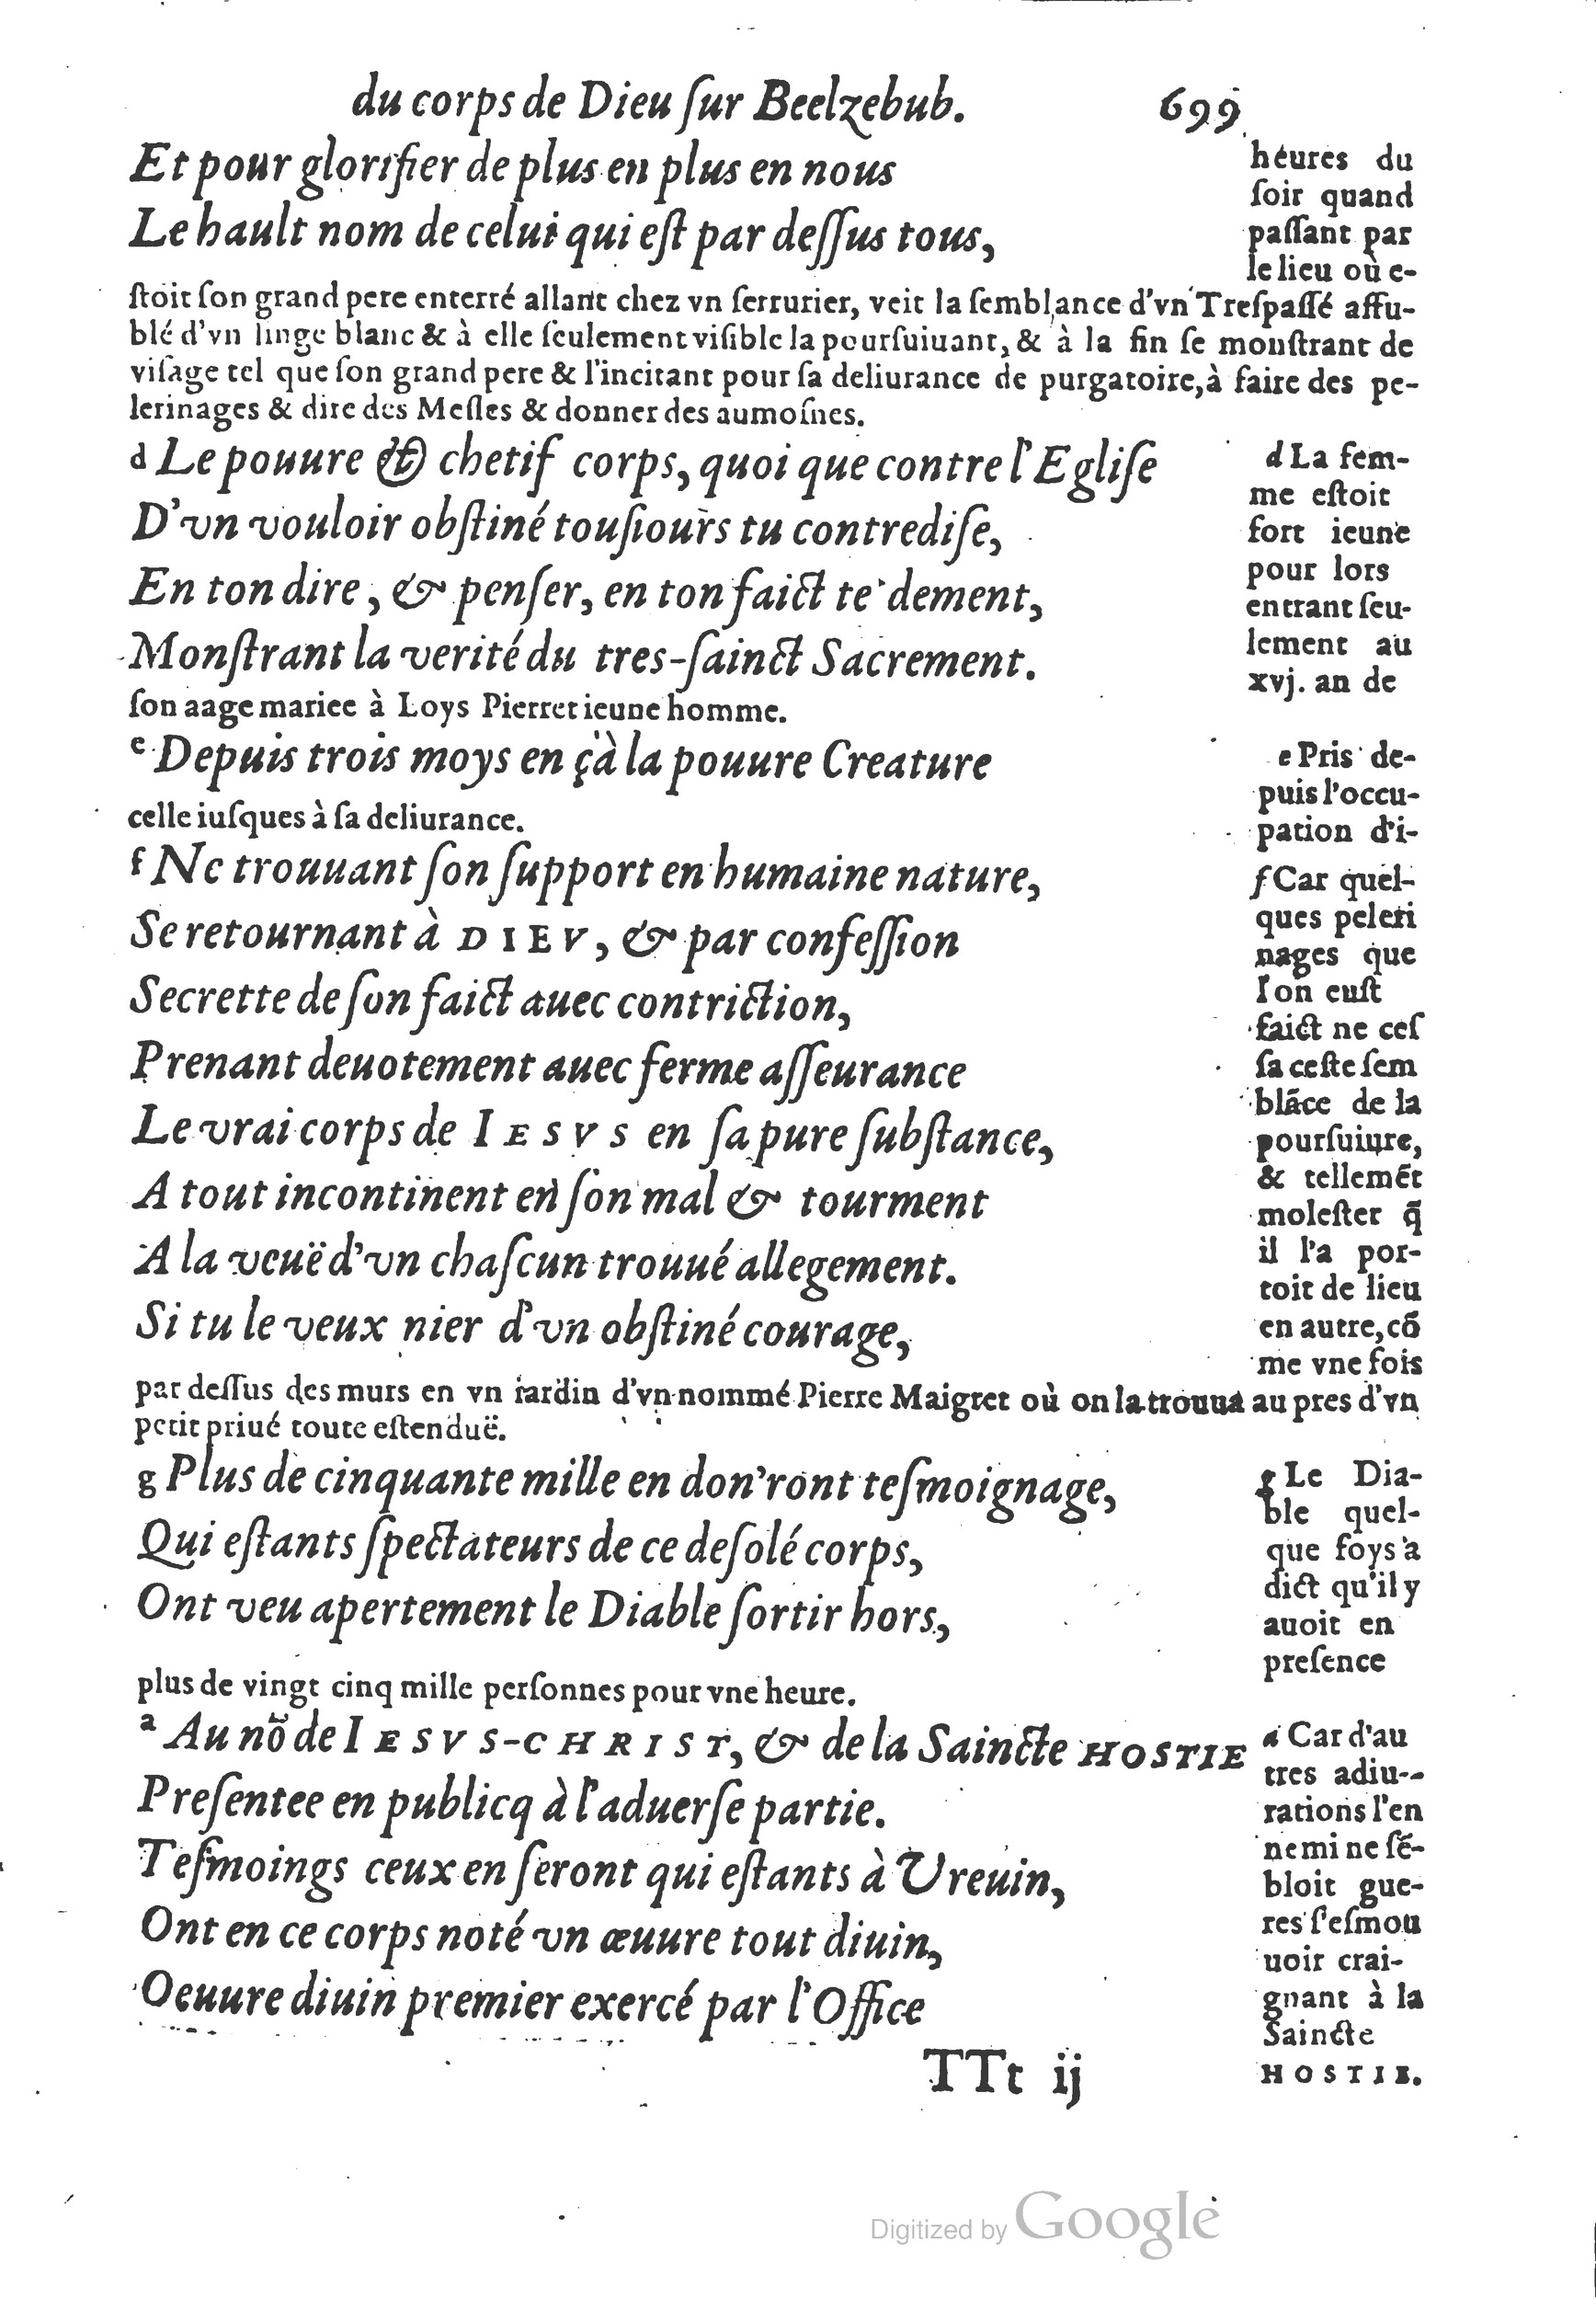 du corps de Dieu ſur Beelzebub. 699
Et pour glorifier de plus en plus en nous
Le hault nom de celui qui eſt par deſſus tous,
heures du
ſoir quand
paſſant par
le lieu où e-
ſtoit ſon grand pere enterré allant chez vn ſerrurier, veit la ſemblance d'vn Treſpaſſé affu-
blé d'vn linge blanc & à elle ſeulement viſible la pourſuiuant, & à la fin ſe monſtrant de
viſage tel que ſon grand pere & l'incitant pour ſa deliurance de purgatoire, à faire des pe-
lerinages & dire des Meſſes & donner des aumoſnes.
d Le pouure & chetif corps, quoi que contre l'Egliſe
D'vn vouloir obſtiné touſiours tu contrediſe,
En ton dire, & penſer, en ton faict te dement,
Monſtrant la verité du tres-ſainct Sacrement.
d La fem-
me eſtoit
fort ieune
pour lors
entrant ſeu-
lement au
xvj. an de
ſon aage mariee à Loys Pierret ieune homme.
e Depuis trois moys en çà la pouure Creature
e Pris de-
puis l'occu-
pation d'i-
celle iuſques à ſa deliurance.
f Ne trouuant ſon ſupport en humaine nature,
Se retournant à DIEV, & par confeſſion
Secrette de ſon faict auec contriction,
Prenant deuotement auec ferme aſſeurance
Le vrai corps de IESVS en ſa pure ſubſtance,
A tout incontinent en ſon mal & tourment
A la veuë d'vn chaſcun trouué allegement.
Si tu le veux nier d'vn obſtiné courage,
f Car quel-
ques peleri
nages que
l'on euſt
faict ne ceſ
ſa ceſte ſem
blāce de la
pourſuiure,
& tellemēt
moleſter q̄
il l'a por-
toit de lieu
en autre, cō
me vne fois
par deſſus des murs en vn iardin d'vn nommé Pierre Maigret où on la trouua au pres d'vn
petit priué toute eſtenduë.
g Plus de cinquante mille en don'ront teſmoignage,
Qui eſtants ſpectateurs de ce deſolé corps,
Ont veu apertement le Diable ſortir hors,
g Le Dia-
ble quel-
que foys a
dict qu'il y
auoit en
preſence
plus de vingt cinq mille perſonnes pour vne heure.
a Au nō de IESVS-CHRIST, & de la Saincte HOSTIE
Preſentee en publicq à l'aduerſe partie.
Teſmoings ceux en ſeront qui eſtants à Vreuin,
Ont en ce corps noté vn œuure tout diuin,
Oeuure diuin premier exercé par l'Office
a Car d'au
tres adiu-
rations l'en
nemi ne ſē-
bloit gue-
res ſ'eſmou
uoir crai-
gnant à la
Saincte
HOSTIE.
TTt ij
Digitized by Google